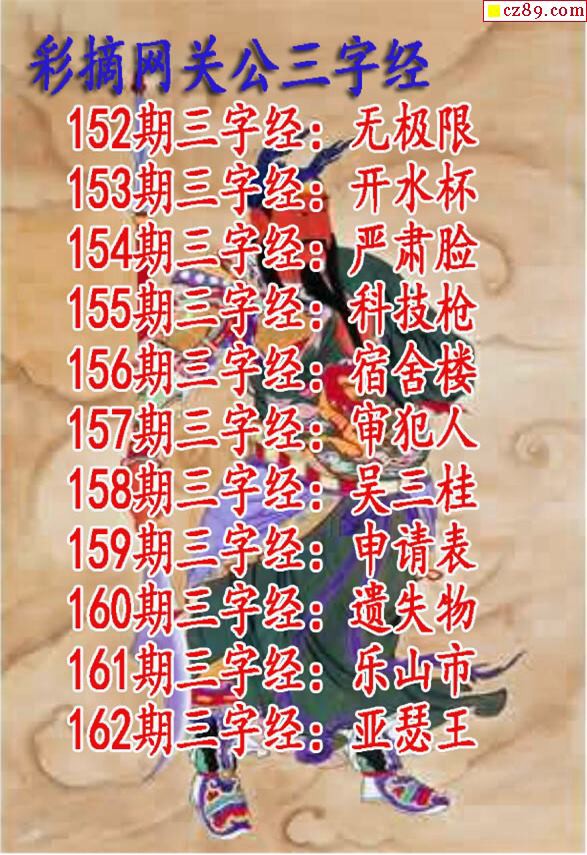 cz89.com
彩摘网关公三字经
152期三字经：无极限
153期三字经：开水杯
154期三字经：严肃脸
155期三字经：科技枪
156期三字经：宿舍楼
157期三字经：审犯人
158期三字经：吴三桂
159期三字经：申请表
160期三字经：遗失物
161期三字经：乐山市
162期三字经：亚瑟王